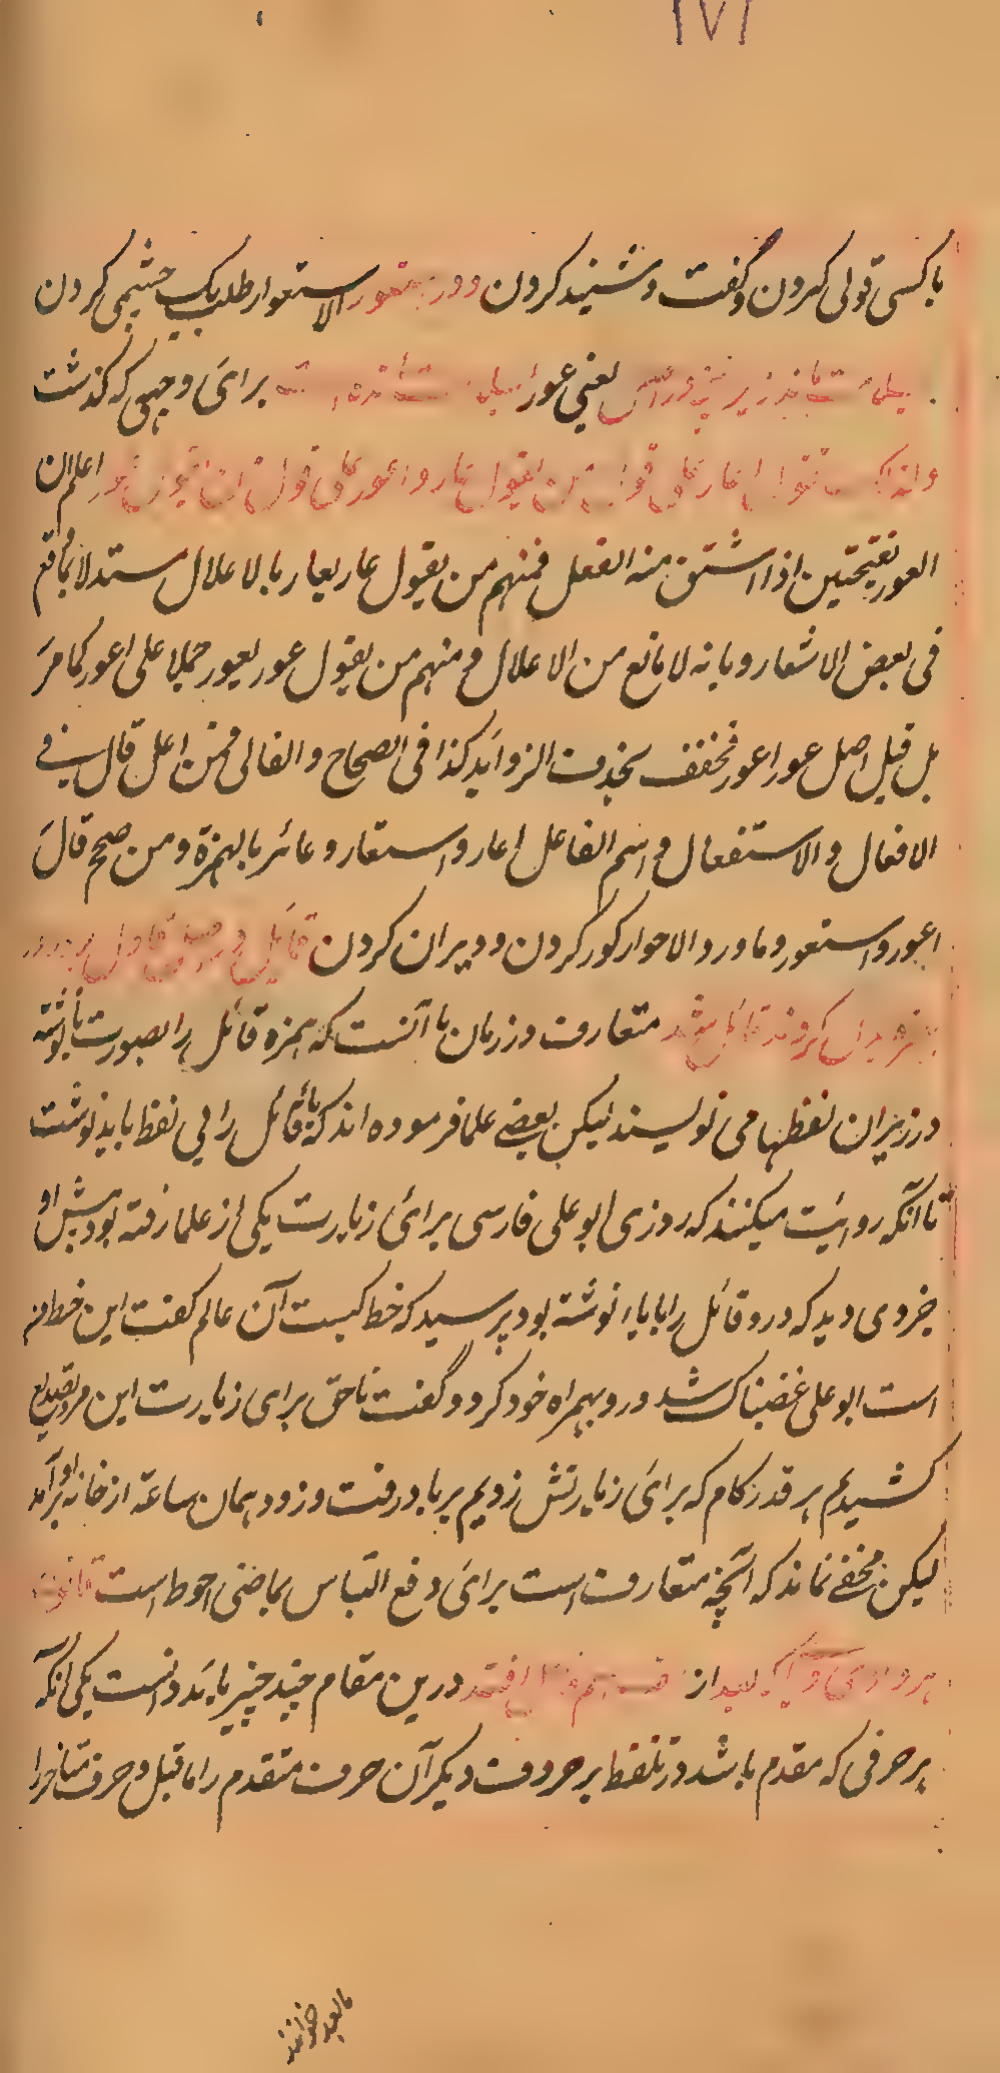 ۱۷۱
با کسی قولی کردن و گفت و شنید کردن و در الاستعوار طلب یک چشمی کردن
یعنی عور برائ وجهی که گذشت
اعلم ان
العور بفتحتین اذا اشتق منه الفعل فمنهم من یقول عار یعار بالاعلال مستدلا بما وقع
فی بعض الاشعار و بانه لا مانع من الاعلال و منهم من یقول عور یعور حملا علی اعور کما مر
بل قیل اصل عور اعور فخفف بحذف الزوائد کذا فی الصحاح و الفالی فمن اعل قال فی
الافعال و الاستفعال و اسم الفاعل اعار و استعار و عائر بالهمزة و من صحح قال
اعور و استعور و عاور و الاعوار کور کردن و ویران کردن قائل در اصل قاول بود
قائل شد متعارف در زمان ما آنست که همزه قائل را بصورت یا نوشته
در زیر آن نقطها می نویسند لیکن بعضے علما فرموده اند که یائ قائل را بی نقط باید نوشت
تا آنکه روائت میکنند که روزی ابو علی فارسی برائ زیارت یکی از علما رفته بود پیش او
جزوی دید که درو قائل را با یا نوشته بود پرسید که خط کیست آن عالم گفت این خط من
است ابو علی غضبناک شد و رو بهمراه خود کرد و گفت ناحق برای زیارت این مرد تصدیع
کشیدیم هر قدر کام که برائ زیارتش زدیم بر باد رفت و زود همان ساعة از خانه او بر آمد
لیکن مخفے نماند که آنچه متعارف است برائ دفع التباس بماضی احوط است قانون
هر واوی و یائ که بعد از الف درین مقام چند چیز باید دانست یکی آنکه
هر حرفی که مقدم باشد در تلفظ بر حروف دیگر آن حرف متقدم را ما قبل و حرف متأخر را
ما بعد خوانند